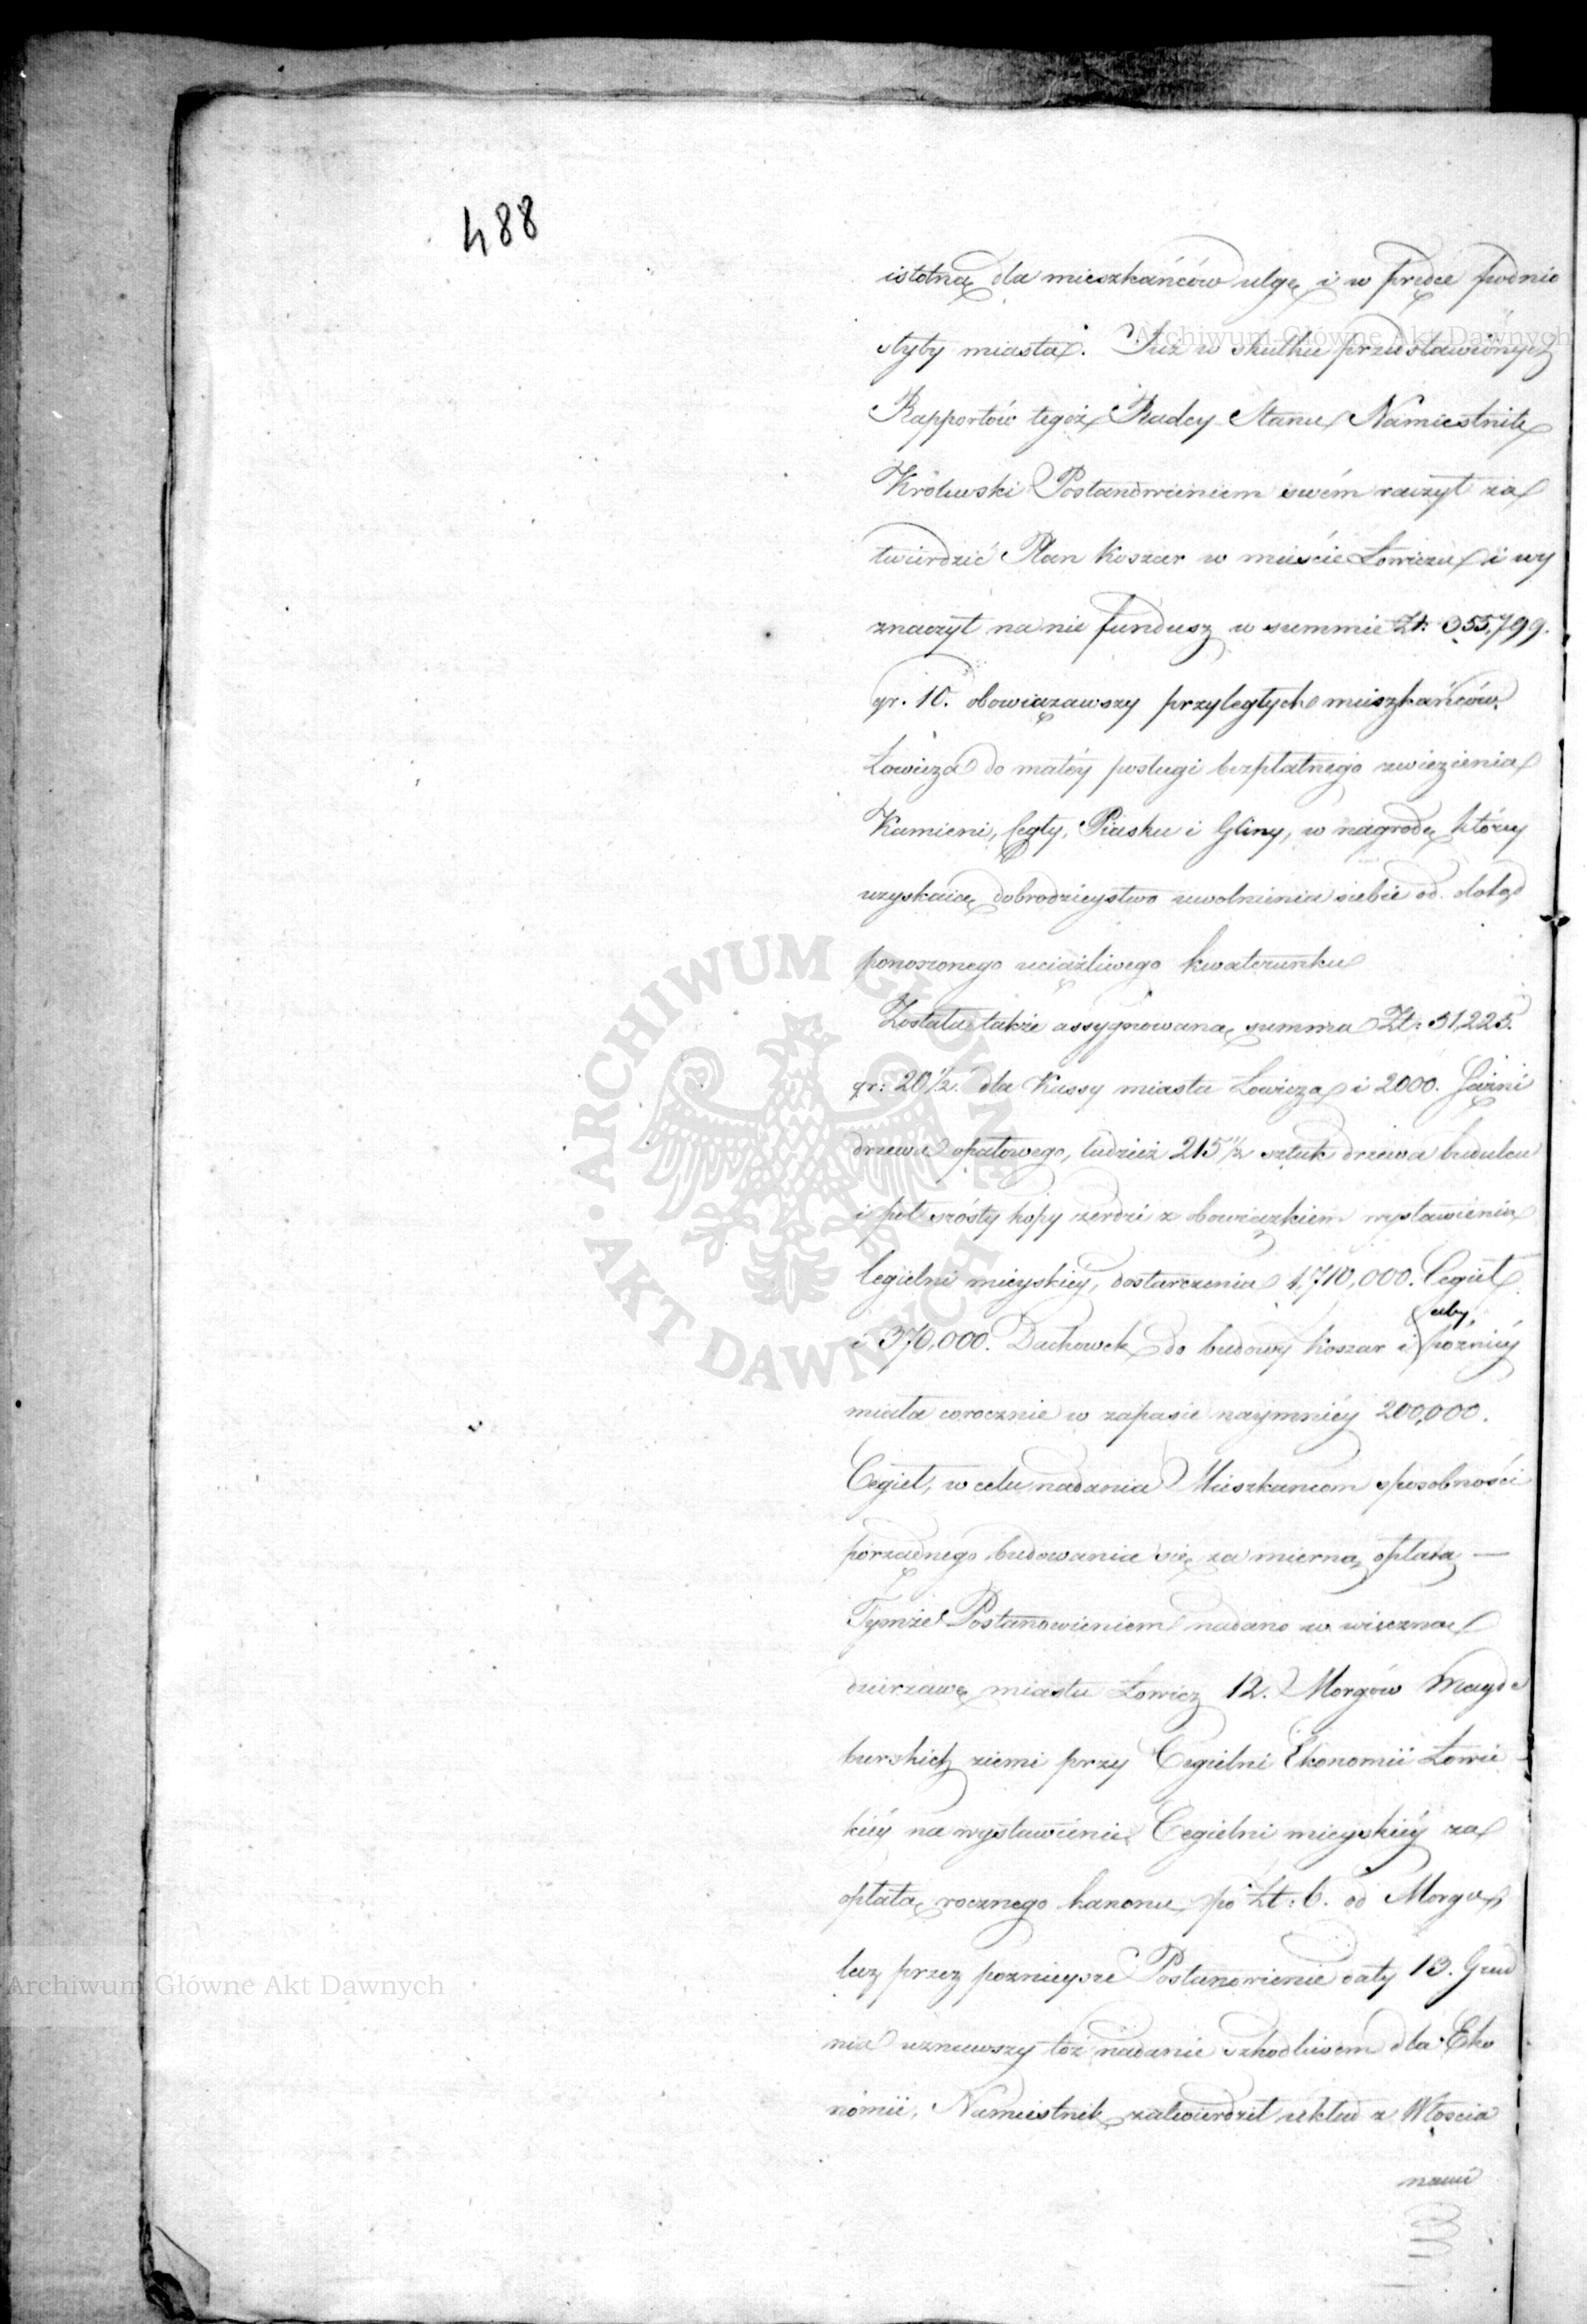 488
istotną dla mieszkańców ulgę i w prędce podnio
słyby miasta. Już w skutku przedstawionych
Rapportów tegoż Radcy Stanu Namiestnik
Królewski Postanowieniem swém raczył za
twierdzić Plan Koszar w mieście Łowiczu i wy
znaczył na nie fundusz w summie Zł: 355,799.
gr. 10. obowiązawszy przyległych mieszkańców
Łowicza do małéy posługi bezpłatnego zwiezienia
Kamieni, Cegły, Piasku i Gliny, w nagrodę któréy
uzyskaią dobrodzieystwo uwolnienia siebie od dotąd
ponoszonego uciążliwego kwaterunku
Została także assygnowaną summa Zł: 51,225.
gr: 20 1/2. dla Kassy miasta Łowicza i 2000. Sążni
drzewa opałowego, tudzież 215 1/2 sztuk drzewa budulcu
i pół szósty kopy żerdzi z obowiązkiem wystawienia
Cegielni mieyskiey, dostarczenia 1,710,000. Cegieł
i 370,000. Dachowek do budowy Koszar i aby późniéy
miała corocznie w zapasie naymniéy 200,000.
Cegieł, w celu nadania Mieszkancom sposobności
porządnego budowania się za mierną opłatą —
Tymże Postanowieniem nadano w wieczną
dzierzawę miastu Łowicz 12. Morgów Magde
burskich ziemi przy Cegielni Ekonomii Łowic
kiéy na wystawienie Cegielni mieyskiéy za
opłatą rocznego kanonu po Zł: 6. od Morgu,
lecz przez poznieysze Postanowienie daty 13. Grud
nia uznawszy toż nadanie szkodliwem dla Eko
nómii, Namiestnik zatwierdził układ z Włościa
nami
Archiwum Główne Akt Dawnych
Archiwum Główne Akt Dawnych
ARCHIWUM GŁÓWNE AKT DAWNYCH